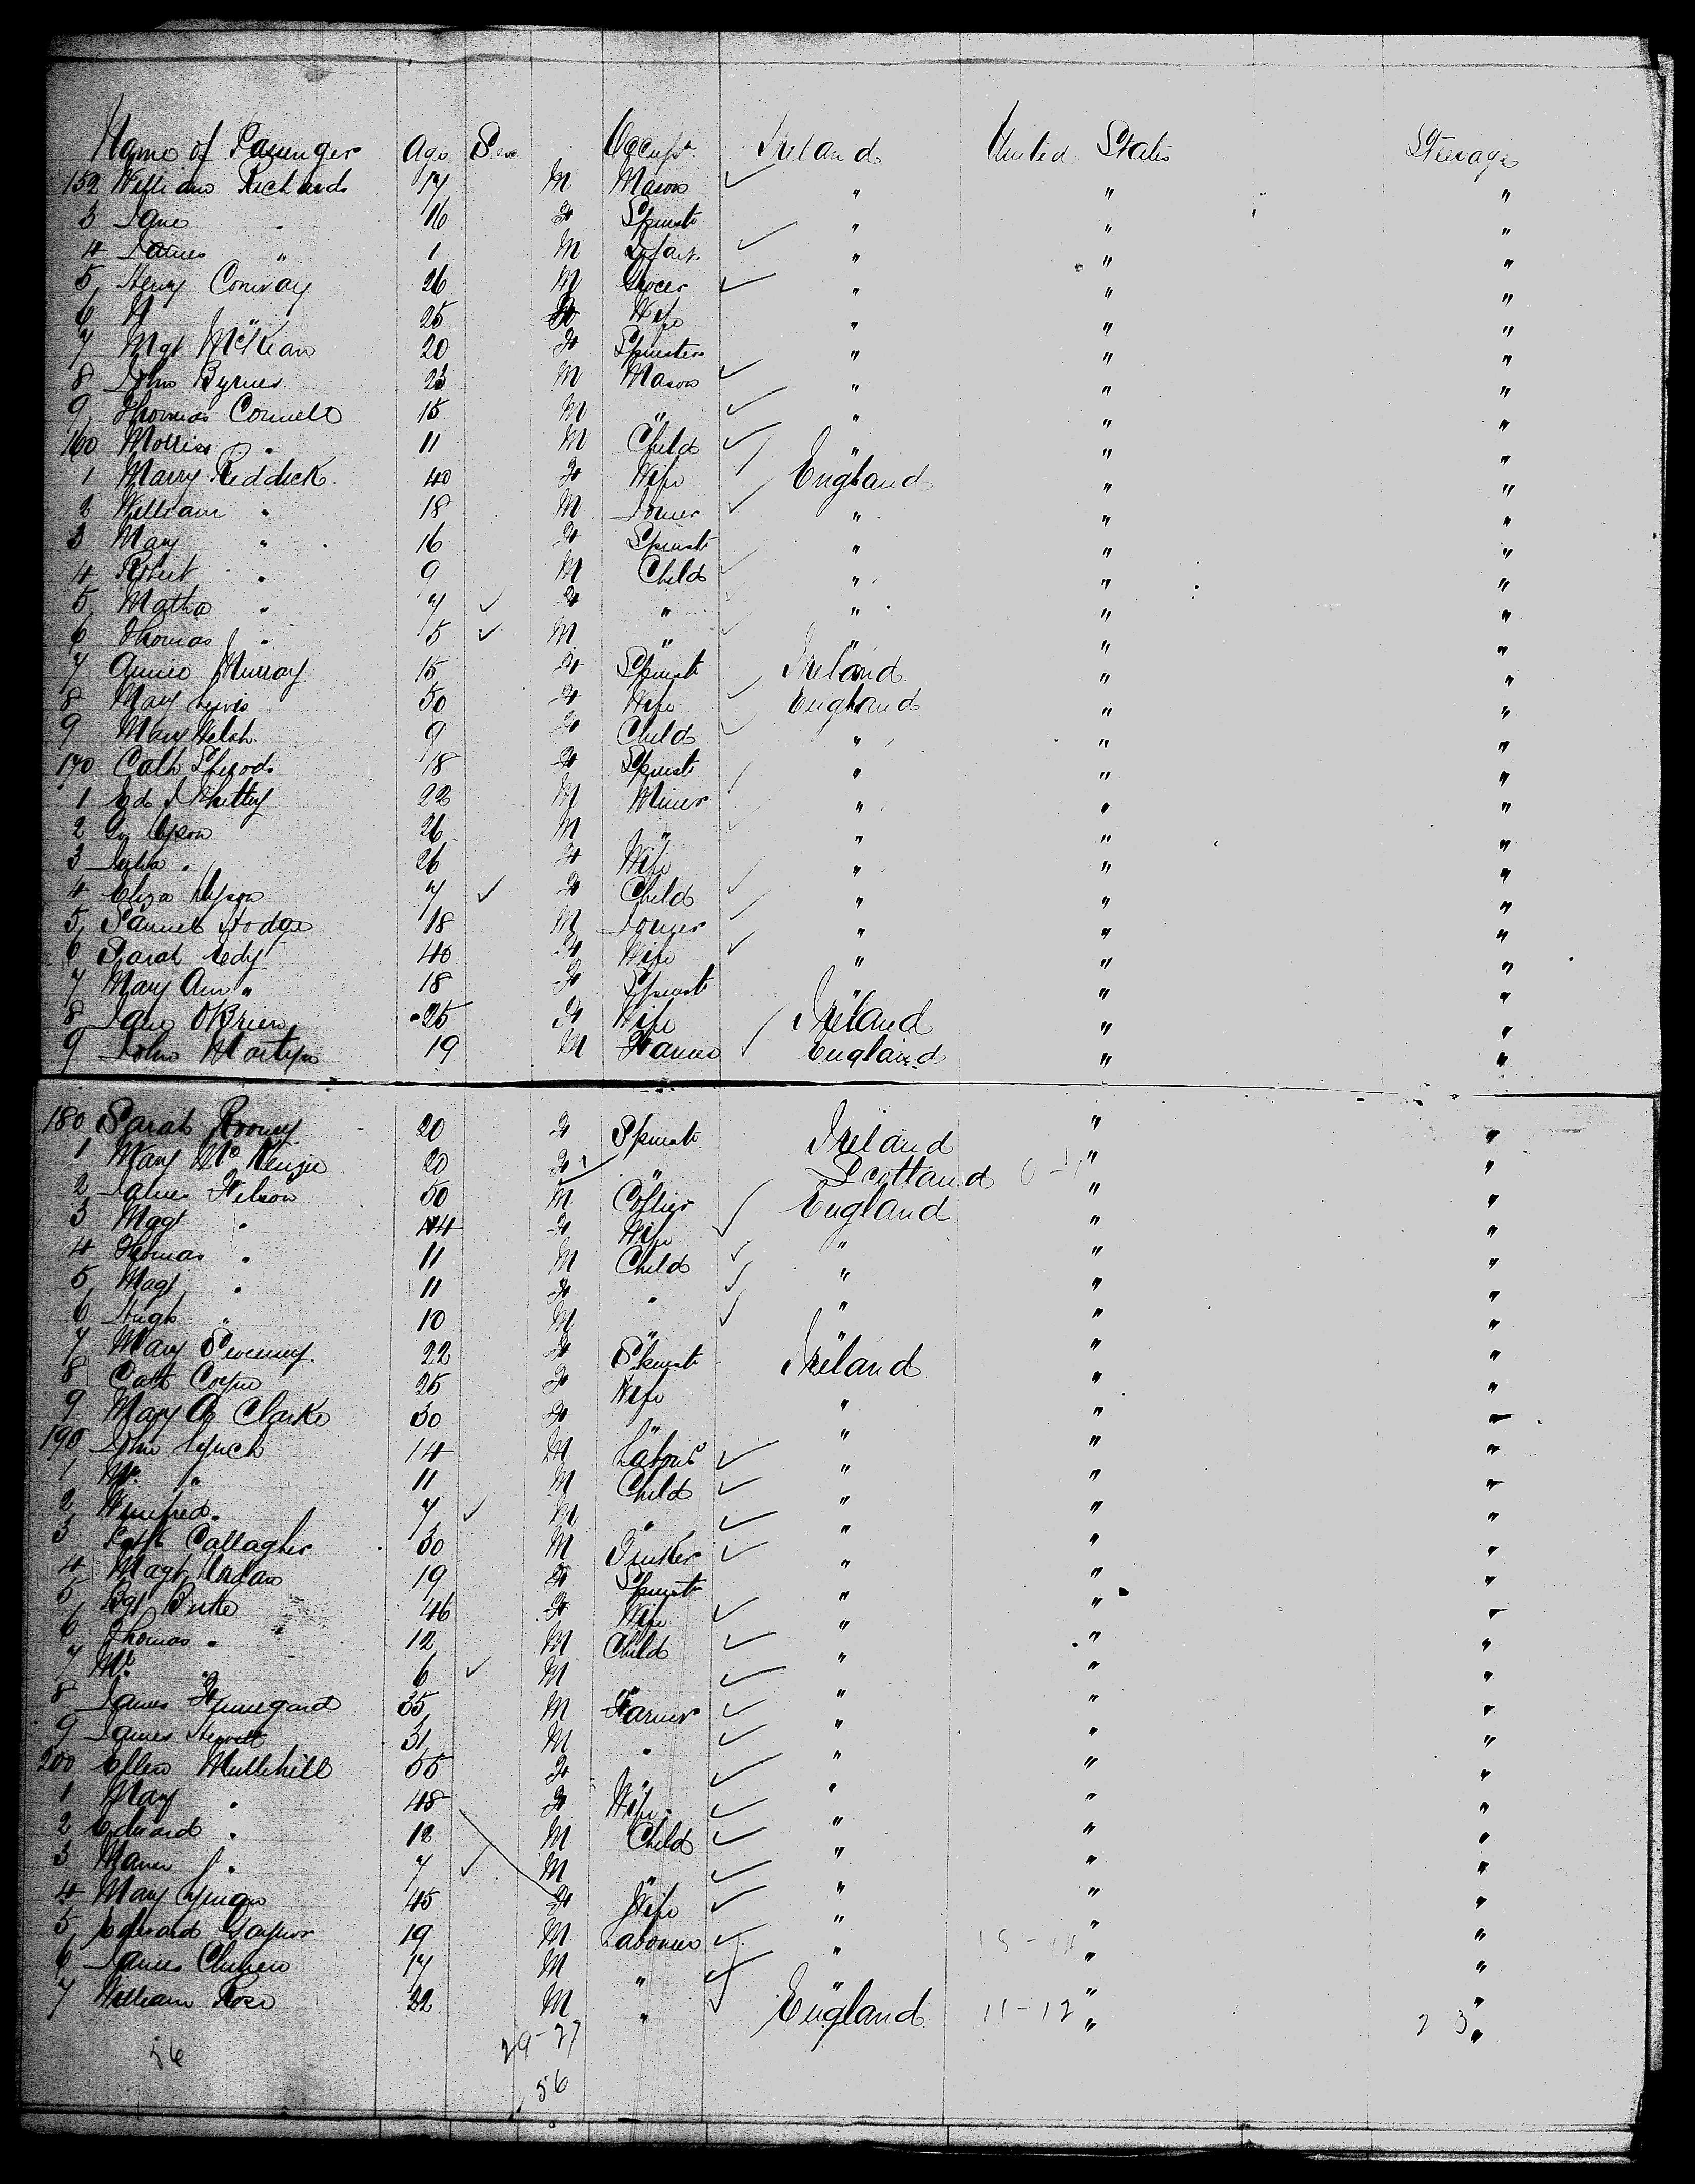 Name of Passenger Age Sex Occupn. Ireland United States Steerage
152 William Richards 17 M Mason " " "
3 Jane " 16 F Spinst " " "
4 James " 1 M Infant " " "
5 Henry Conway 26 M Grocer " " "
6 " 25 F Wife " " "
7 Mgt McKean 20 F Spinster " " "
8 John Byrnes 23 M Mason " " "
9 Thomas Connell 15 M " " " "
160 Morriss " 11 M Child " " "
1 Marry Reddick 40 F Wife England " "
2 William " 18 M Joiner " " "
3 Mary " 16 F Spinst " " "
4 Robert " 9 M Child " " "
5 Matha " 7 F " " " "
6 Thomas " 5 M " " " "
7 Annie Murray 15 F Spinst Ireland " "
8 Mary Lewis 50 F Wife England " "
9 Mary Welsh 9 F Child " " "
170 Cath 18 F Spinst " " "
1 Ed 22 M Miner " " "
2 26 M " " " "
3 Julia " 26 F Wife " " "
4 Eliza 7 F Child " " "
5 Samuel Hodge 18 M Joiner " " "
6 Sarah Edy 40 F Wife " " "
7 Mary Ann " 18 F Spinst " " "
8 Jane OBrien 25 F Wife Ireland " "
9 John Martyn 19 M Farmer England " "
180 Sarah Rooney 20 F Spinst Ireland " "
1 Mary McKenzie 20 F " Scotland " "
2 James Wilson 50 M Collier England " "
3 Magt " 44 F Wife " " "
4 Thomas " 11 M Child " " "
5 Magt " 11 F " " " "
6 Hugh " 10 M " " " "
7 Mary Sweeney 22 F Spinst Ireland " "
8 Cath Coyne 25 F Wife " " "
9 Mary A Clarke 30 F " " " "
190 John Lynch 14 M Labour " " "
1 " 11 M Child " " "
2 Winifred " 7 M " " " "
3 Callagher 30 M Tinker " " "
4 Magt 19 F Spinst " " "
5 Bgt Burke 46 F Wife " " "
6 Thomas " 12 M Child " " "
7 " 6 M " "
8 James 35 M Farmer " " "
9 James Hewitt 31 M " " " "
200 Ellen Mullihill 55 F " " " "
1 Mary " 48 F Wife " " "
2 Edward " 12 M Child " " "
3 " 7 M " " " "
4 Mary 45 F Wife " " "
5 Edward Gaynor 19 M Labourer " " "
6 James 17 M " " " "
7 William Rose 22 M " England 11-12 " 2 3 "
56 29-27
56